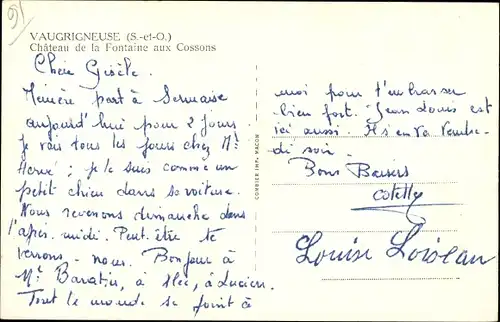 91
VAUGRIGNEUSE (S.-et-O.)
Château de la Fontaine aux Cossons
Chère Gisèle.
part à Sermaise
aujourd'hui pour 2 jours
je vais tous les jours chez Mr
Hervé ; je le suis comme un
petit chien dans sa voiture.
Nous revenons dimanche dans
l'après-midi. Peut-être te
verrons-nous. Bonjour à
Mr Baratin, à Alec, à Lucien.
Tout le monde se joint à
COMBIER IMP. MACON
moi pour t'embrasser
bien fort. Jean Louis est
ici aussi. Il s'en va vendre-
di soir.
Bons Baisers
Louise Loiseau